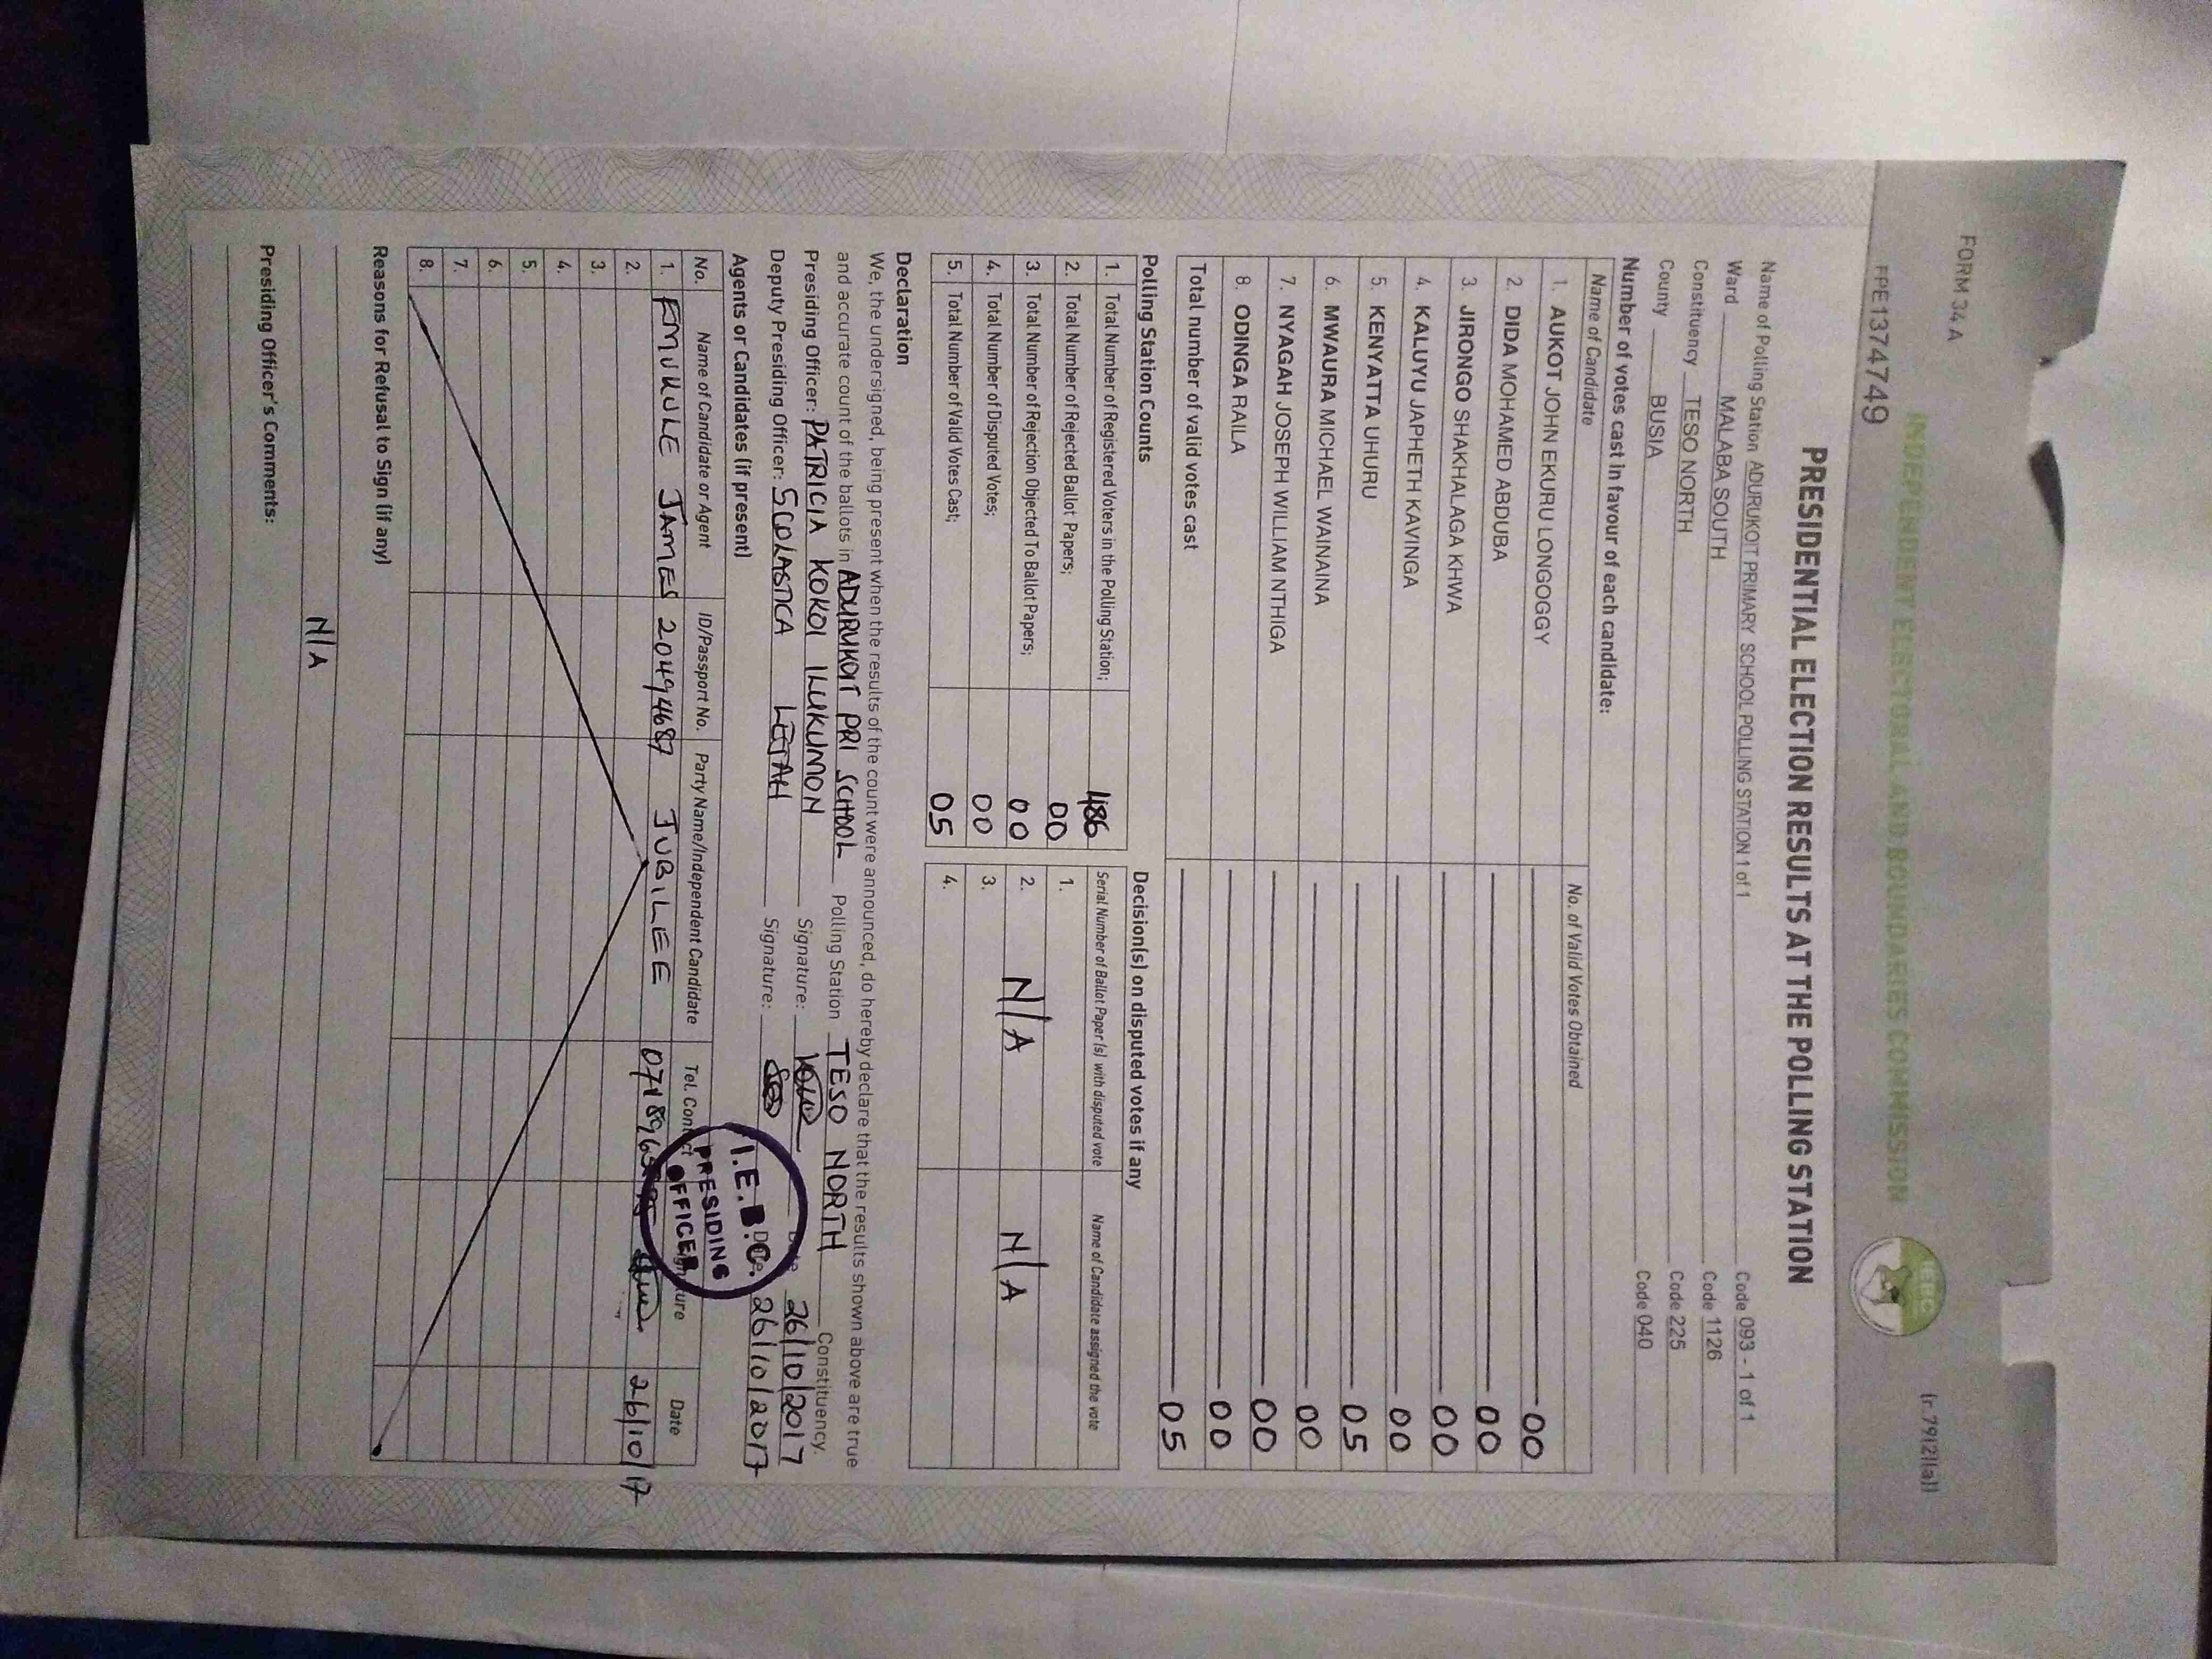 FORM 34 A
(r.79(2)(a))
INDEPENDENT ELECTORAL AND BOUNDARIES COMMISSION
IEBC
PE1374749
PRESIDENTIAL ELECTION RESULTS AT THE POLLING STATION
Name of Polling Station ADURUKOIT PRIMARY SCHOOL POLLING STATION 1 of 1 Code 093 - 1 of 1
Ward MALABA SOUTH Code 1126
Constituency TESO NORTH Code 225
County BUSIA Code 040
Number of votes cast in favour of each candidate:
Name of Candidate No. of Valid Votes Obtained
1. AUKOT JOHN EKURU LONGOGGY 00
2. DIDA MOHAMED ABDUBA 00
3. JIRONGO SHAKHALAGA KHWA 00
4. KALUYU JAPHETH KAVINGA 00
5. KENYATTA UHURU 05
6. MWAURA MICHAEL WAINAINA 00
7. NYAGAH JOSEPH WILLIAM NTHIGA 00
8. ODINGA RAILA 00
Total number of valid votes cast 05
Polling Station Counts
1. Total Number of Registered Voters in the Polling Station; 486
2. Total Number of Rejected Ballot Papers; 00
3. Total Number of Rejection Objected To Ballot Papers; 00
4. Total Number of Disputed Votes; 00
5. Total Number of Valid Votes Cast; 05
Decision(s) on disputed votes if any
Serial Number of Ballot Paper(s) with disputed vote Name of Candidate assigned the vote
1.
2. N/A N/A
3.
4.
Declaration
We, the undersigned, being present when the results of the count were announced, do hereby declare that the results shown above are true
and accurate count of the ballots in ADURUKOIT PRI SCHOOL Polling Station TESO NORTH Constituency.
Presiding Officer: PATRICIA KOKOI IKUKUMON Signature: Date 26/10/2017
Deputy Presiding Officer: SCOLASTICA Signature: Date 26/10/2017
I.E.B.C.
PRESIDING
OFFICER
Agents or Candidates (if present)
No. Name of Candidate or Agent ID/Passport No. Party Name/Independent Candidate Tel. Contact Signature Date
1. EMUKULE JAMES 20494687 JUBILEE 26/10/17
2.
3.
4.
5.
6.
7.
8.
Reasons for Refusal to Sign (if any)
N/A
Presiding Officer's Comments: